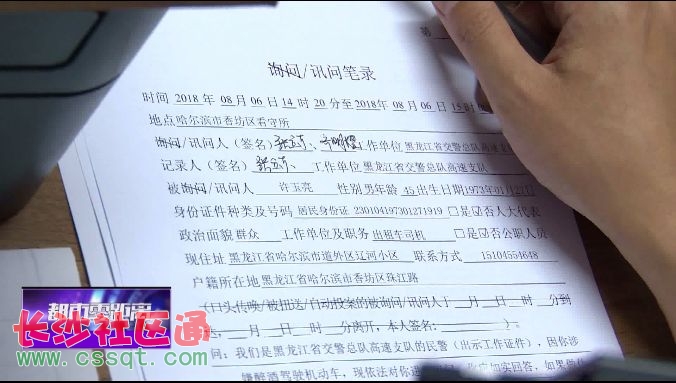 第
询问/讯问笔录
时间 2018 年 08 月 06 日 14 时 20 分至 2018年 08 月 06 日 15时
地点哈尔滨市香坊区看守所
询问/讯问人（签名）、工作单位黑龙江省交警总队高速支
记录人（签名）、工作单位黑龙江省交警总队高速支队
被询问/讯问人 许玉亮 性别男年龄 45出生日期1973年01月27日
身份证件种类及号码 居民身份证 230104197301271919 □是☑否人大代表
政治面貌 群众 工作单位及职务 出租车司机 □是☑否公职人员
现住址 黑龙江省哈尔滨市道外区辽河小区 联系方式 15104554648
户籍所在地 黑龙江省哈尔滨市香坊区珠江路
（口头传唤/被扭送/自动投案的被询问/讯问人于 月 日 时 分到
达， 月 日 时 分离开，本人签名： ）。
问：我们是黑龙江省交警总队高速支队的民警（出示工作证件），因你涉
嫌醉酒驾驶机动车，现依法对你进 如实回答，如果
都市零距离
长沙社区通
www.cssqt.com